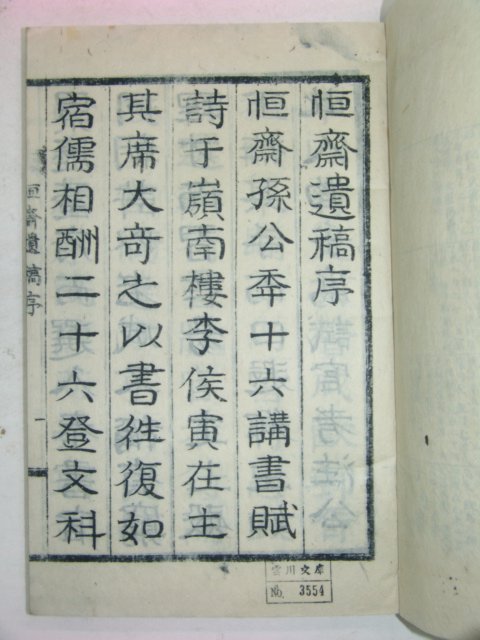 恒齋遺稿序
恒齋孫公秊十六講書賦
詩于嶺南樓李侯寅在主
其席大奇之以書徃復如
宿儒相酬二十六登文科
恒齋遺稿序
一
雲川文庫
No. 3554